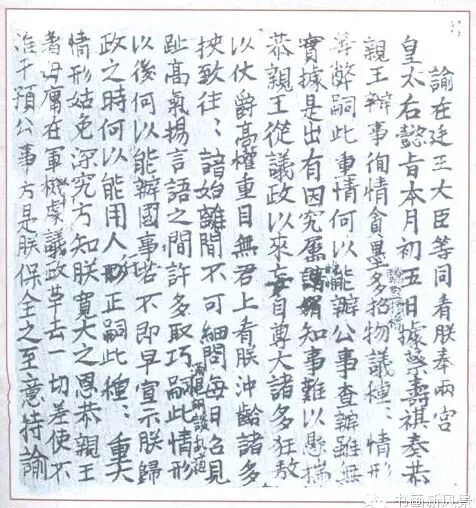 諭在廷王大臣等同看朕奉兩宮
皇太后懿旨本月初五日據蔡壽祺奏恭
親王辦事徇情貪墨驕盈攬權多招物議種〻情形
等弊嗣此重情何以能辦公事查辦雖無
實據是出有因究屬知事難以懸揣
恭親王從議政以來妄自尊大諸多狂敖
以仗爵高權重目無君上看朕沖齡諸多
挾致往〻諳始離間不可細問每日召見
趾高氣揚言語之間許多取巧滿口胡談亂道嗣此情形
以後何以能辦國事若不即早宣示朕歸
政之時何以能用人行正嗣此種〻重大
情形姑免深究方知朕寬大之恩恭親王
著毋庸在軍機處議政革去一切差使不
准干預公事方是朕保全之至意特諭
书画新风景